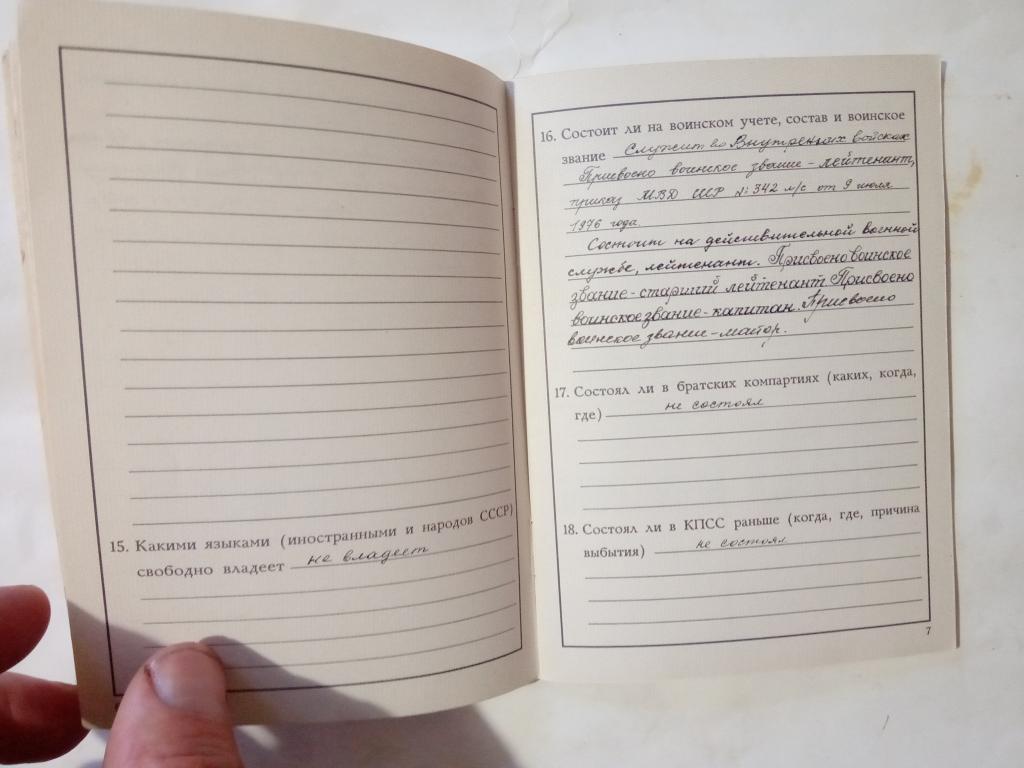 15. Какими языками (иностранными и народов СССР)
свободно владеет не владеет
16. Состоит ли на воинском учете, состав и воинское
звание Служит во Внутренних войсках
Присвоено воинское звание - лейтенант,
приказ МВД СССР № 342 л/с от 9 июля
1976 года.
Состоит на действительной военной
службе, лейтенант. Присвоено воинское
звание - старший лейтенант Присвоено
воинское звание - капитан. Присвоено
воинское звание - майор.
17. Состоял ли в братских компартиях (каких, когда,
где) не состоял
18. Состоял ли в КПСС раньше (когда, где, причина
выбытия) не состоял
7